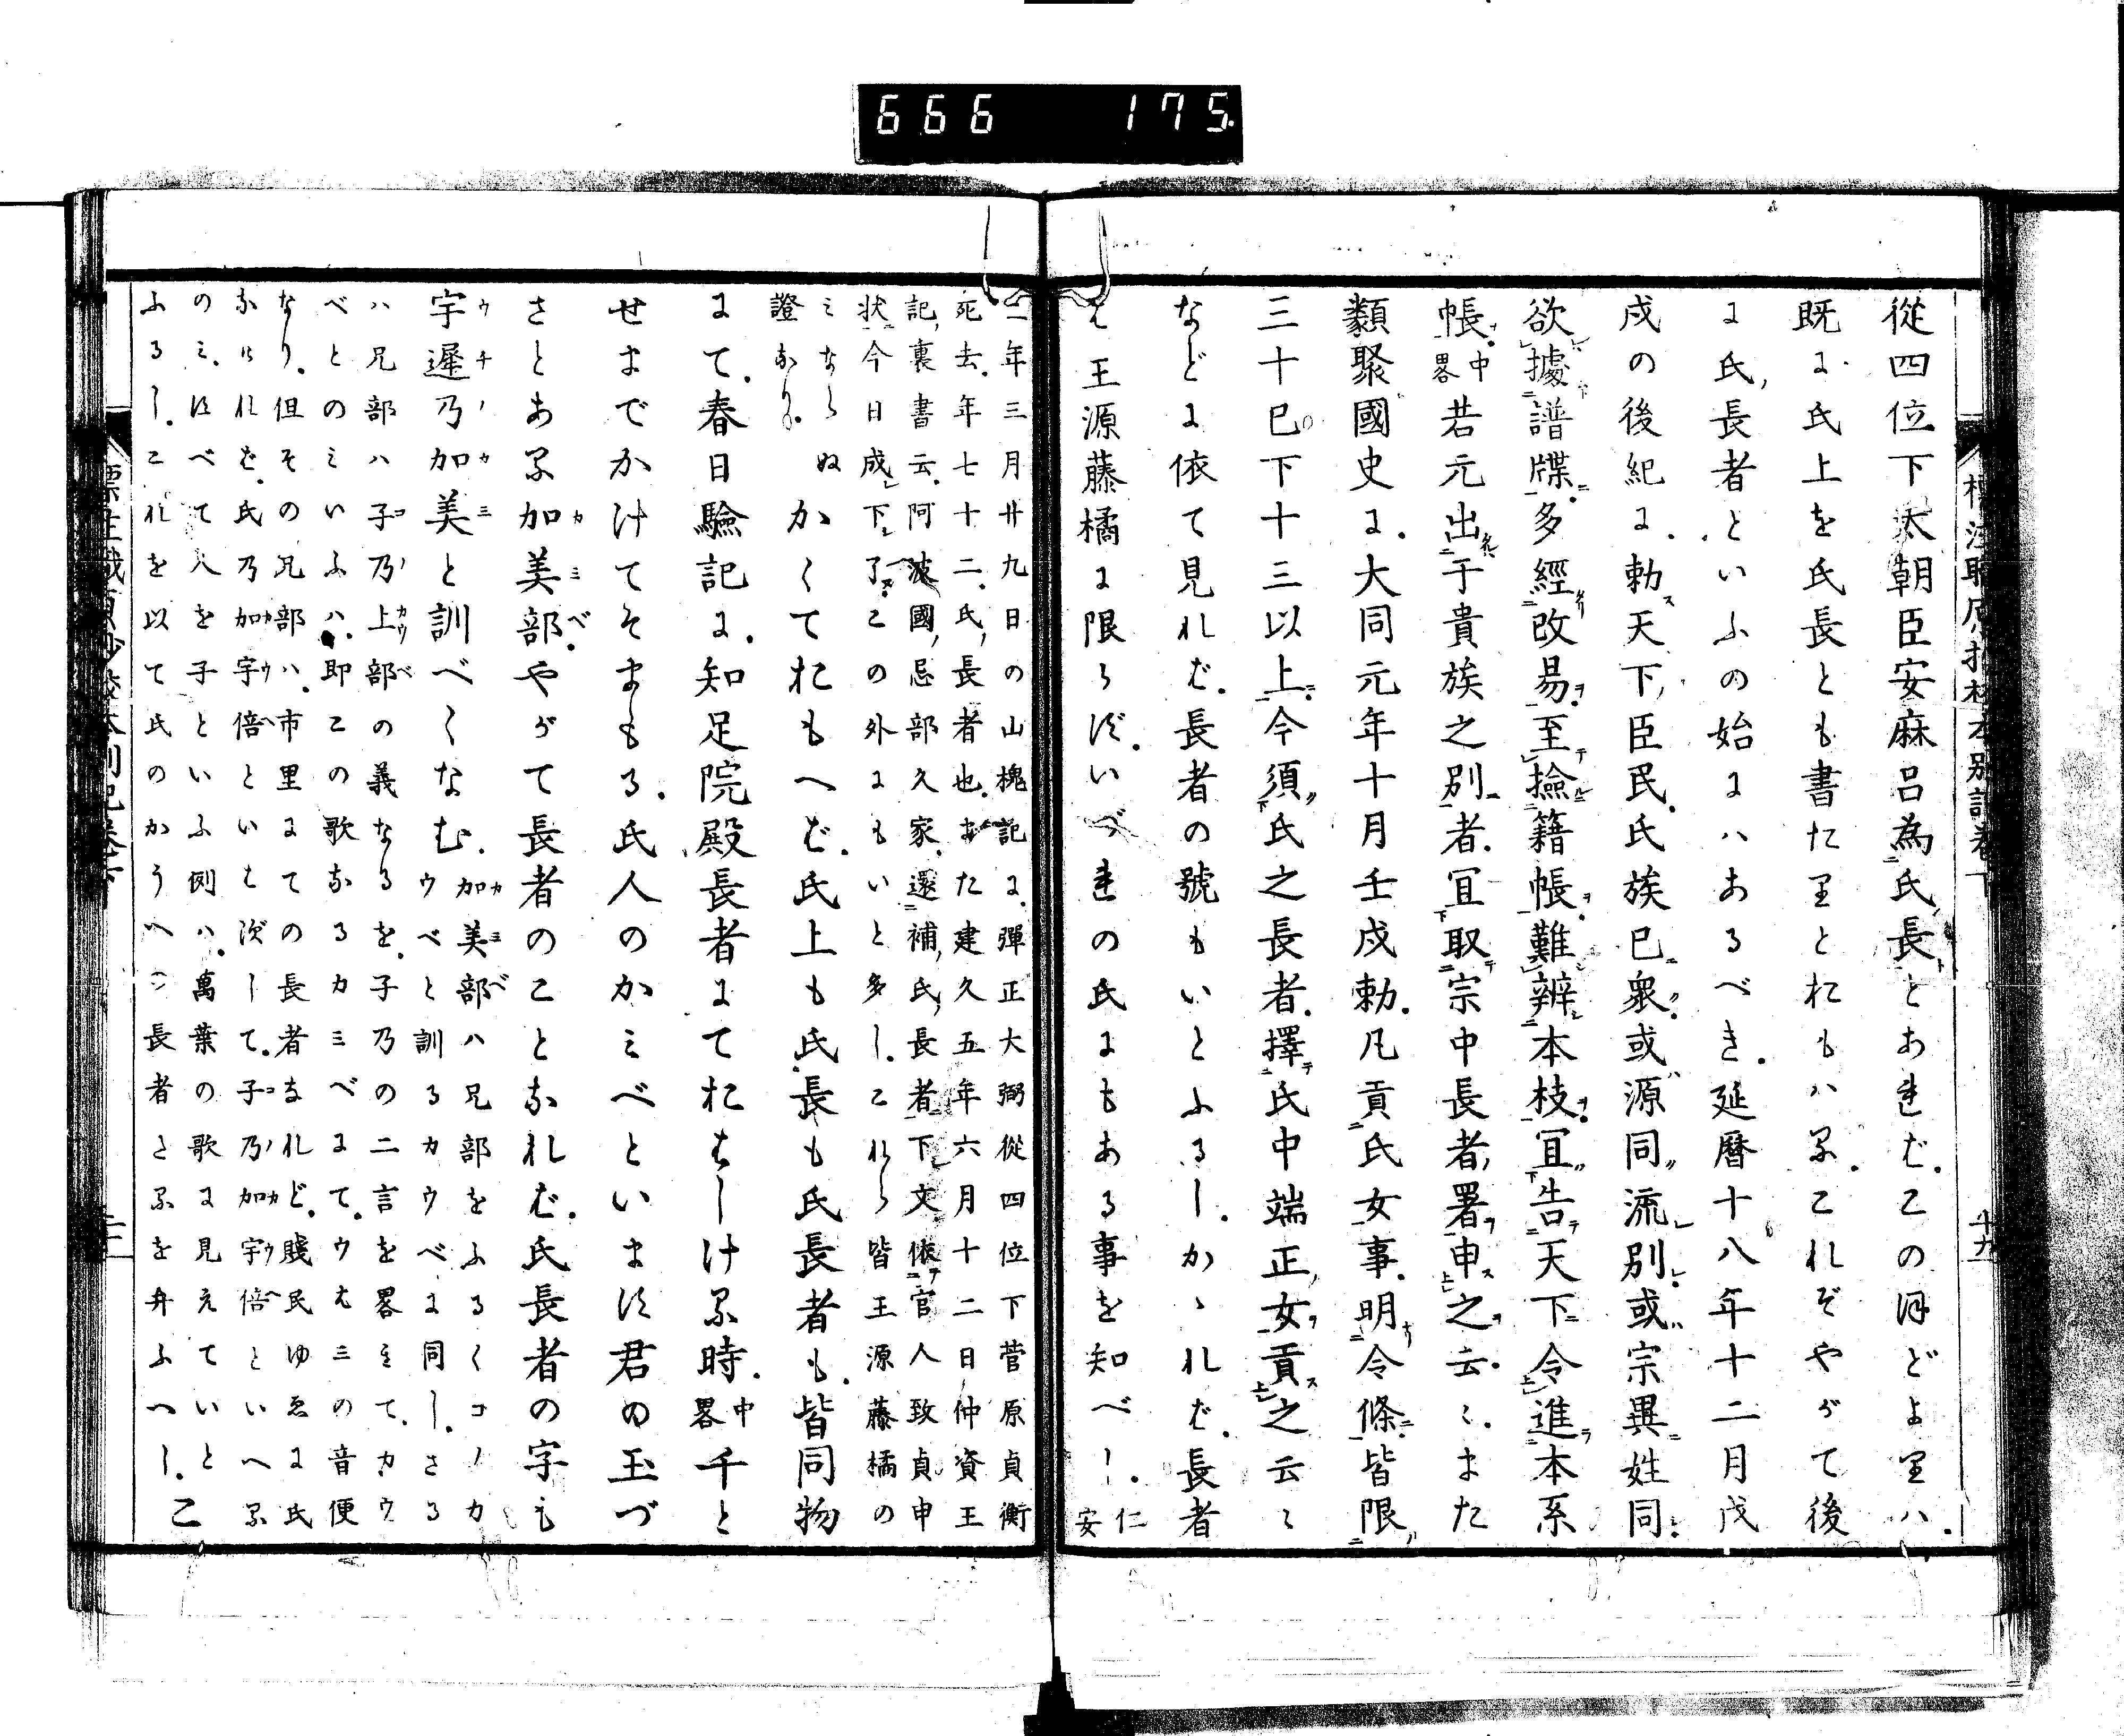 666 175
從四位下太朝臣安麻呂為氏長とあれば。このほどよりハ。
既に氏上を氏長とも書たりとおもハる。これぞやがて後
に氏長者といふの始にハあるべき。延暦十八年十二月戊
戌の後紀に。勅天下臣民。氏族已衆。或源同流別。或宗異姓同。
欲據譜牒。多經改易。至撿籍帳。難辨本枝。宜告天下令進本系
帳。中畧若元出于貴族之別者。宜取宗中長者署申之云〻。また
類聚國史に。大同元年十月壬戌勅。凡貢氏女事。明令條。皆限
三十已下十三以上。今須氏之長者。擇氏中端正女貢之云〻
などに依て見れば。長者の號もいとふるし。かゝれば。長者
は王源藤橘に限らず。いづれの氏にもある事を知べし。仁安
二年三月廿九日の山槐記に。彈正大弼從四位下菅原貞衡
死去。年七十二。氏長者也。また建久五年六月十二日仲資王
記裏書云。阿波國忌部久家。還補氏長者下文。依官人致貞申
状。今日成下了。この外にもいと多し。これら皆王源藤橘の
みならぬ
證なり。かくておもへば。氏上も氏長も氏長者も。皆同物
にて。春日驗記に。知足院殿長者にておはしける時。中畧千と
せまでかけてそまもる。氏人のかみべといます君の玉づ
さとある加美部。やがて長者のことなれば。氏長者の字も
宇遲乃加美と訓べくなむ。加美部ハ兄部をふるくコノカ
ウベと訓るカウベに同し。さる
ハ兄部ハ子乃上部の義なるを。子乃の二言を畧きて。カウ
べとのミいふハ。即この歌なるカミベにて。ウはミの音便
なり。但その兄部ハ。市里にての長者なれど。賤民ゆゑに氏
なければ。氏乃加宇倍といはずして。子乃加宇倍といへる
のミ。すべて人を子といふ例ハ。萬葉の歌に見えていと
ふるし。これを以て氏のかうへハ長者とるを弁ふへし。こ